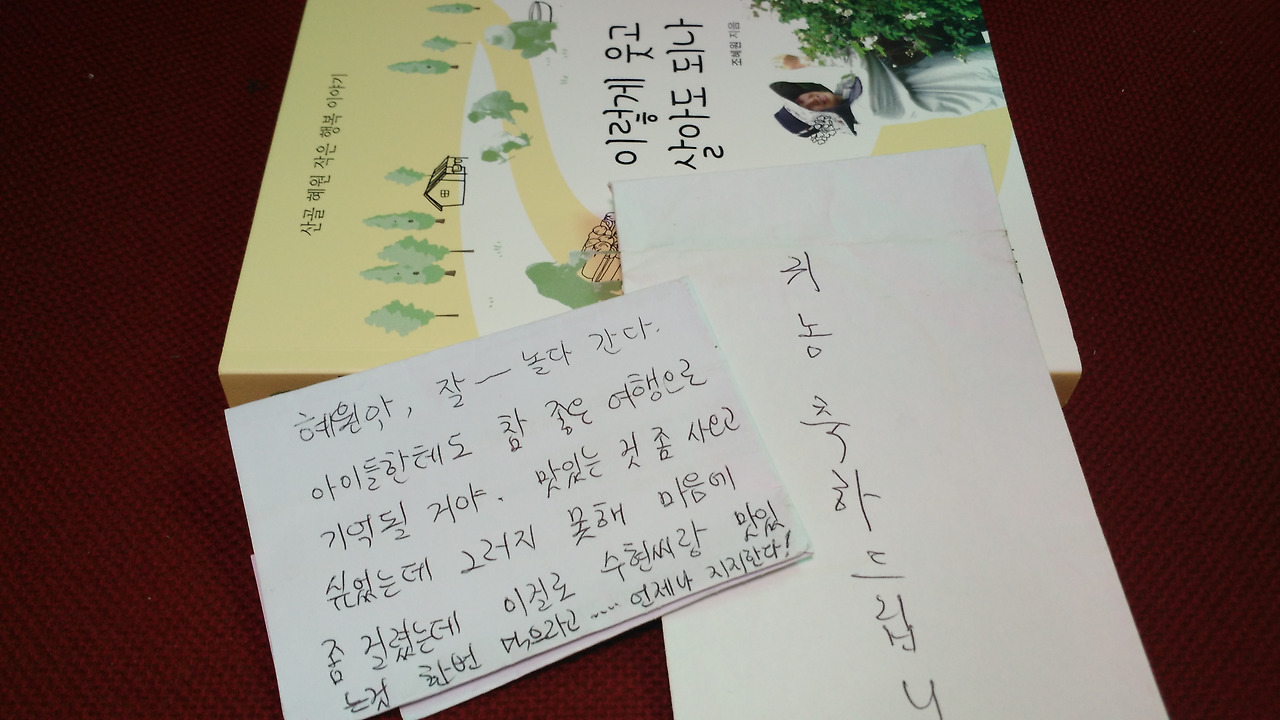 이렇게 웃고
살아도 되나
조혜원 지음
산골 혜원 작은 행복 이야기
귀농축하드립니
혜원아, 잘 — 놀다 간다.
아이들한테도 참 좋은 여행으로
기억될 거야. 맛있는 것 좀 사오고
싶었는데 그러지 못해 마음에
좀 걸렸는데 이걸로 수현씨랑 맛있
는것 한번 먹으라고 ..... 언제나 지지한다!